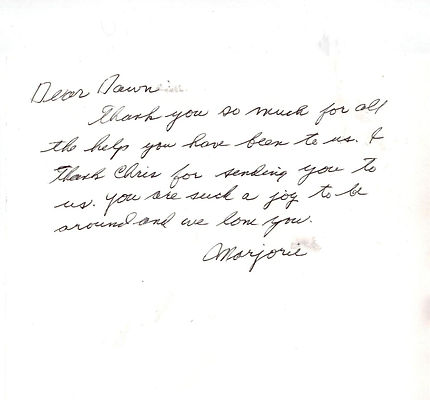 Dear Dawn
Thank you so much for all
the help you have been to us. I
thank Chris for sending you to
us. you are such a joy to be
around and we love you.
Marjorie